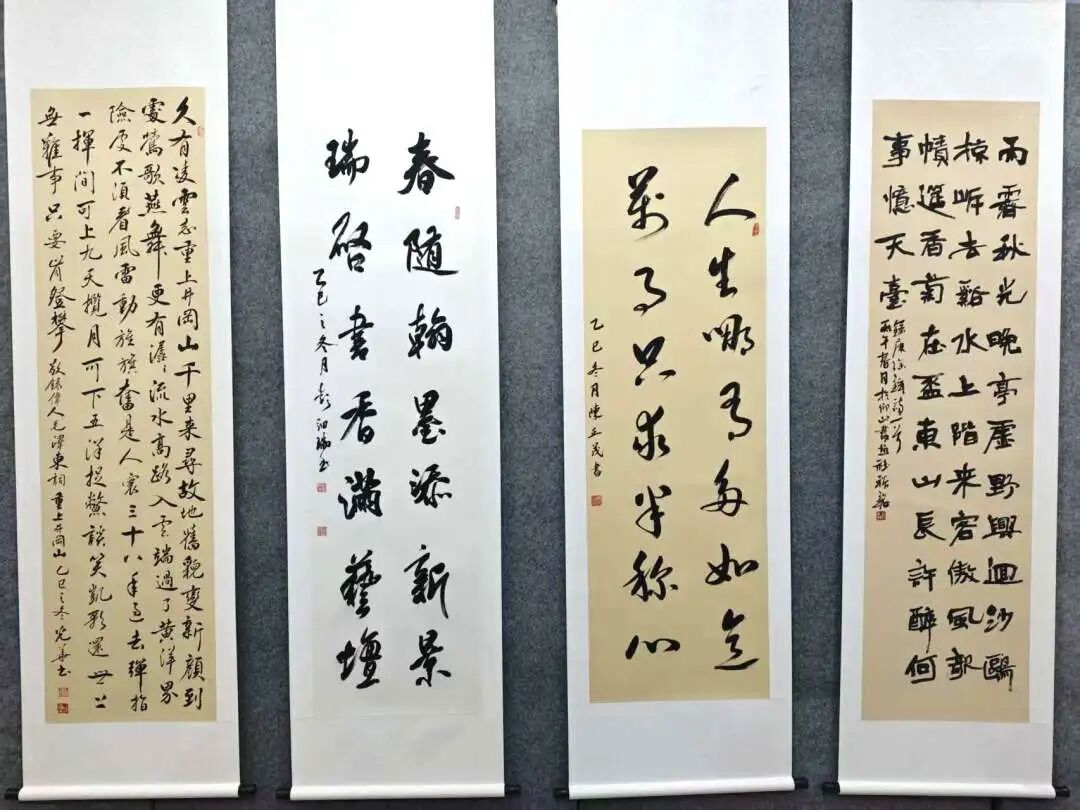 雨霽秋光晚亭虛野興迴沙鷗
掠岸去谿水上階來客傲風欹
幘筵香菊在盃東山長許醉何
事憶天臺
丙午春月於
人生哪有多如意
萬事只求半稱心
乙巳冬月陳正茂書
春隨翰墨添新景
瑞啓書香滿藝壇
乙巳之冬月彭
久有凌雲志重上井岡山千里來尋故地舊貌變新顏到
處鶯歌燕舞更有潺〻流水高路入雲端過了黄洋界
險處不須看風雷動旌旗奮是人寰三十八年過去彈指
一揮間可上九天攬月可下五洋捉鱉談笑凱歌還世上
無難事只要肯登攀 敬錄偉人毛澤東詞重上井岡山乙巳之冬光華书